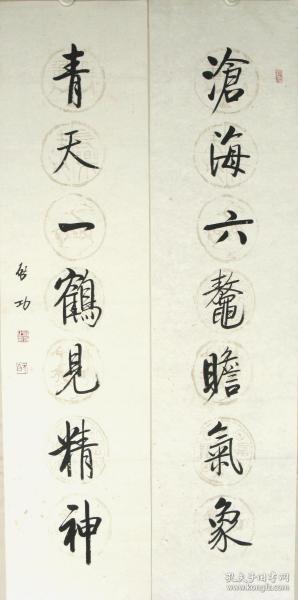 滄海六鼇瞻氣象
青天一鶴見精神
啓功
孔夫子旧书网